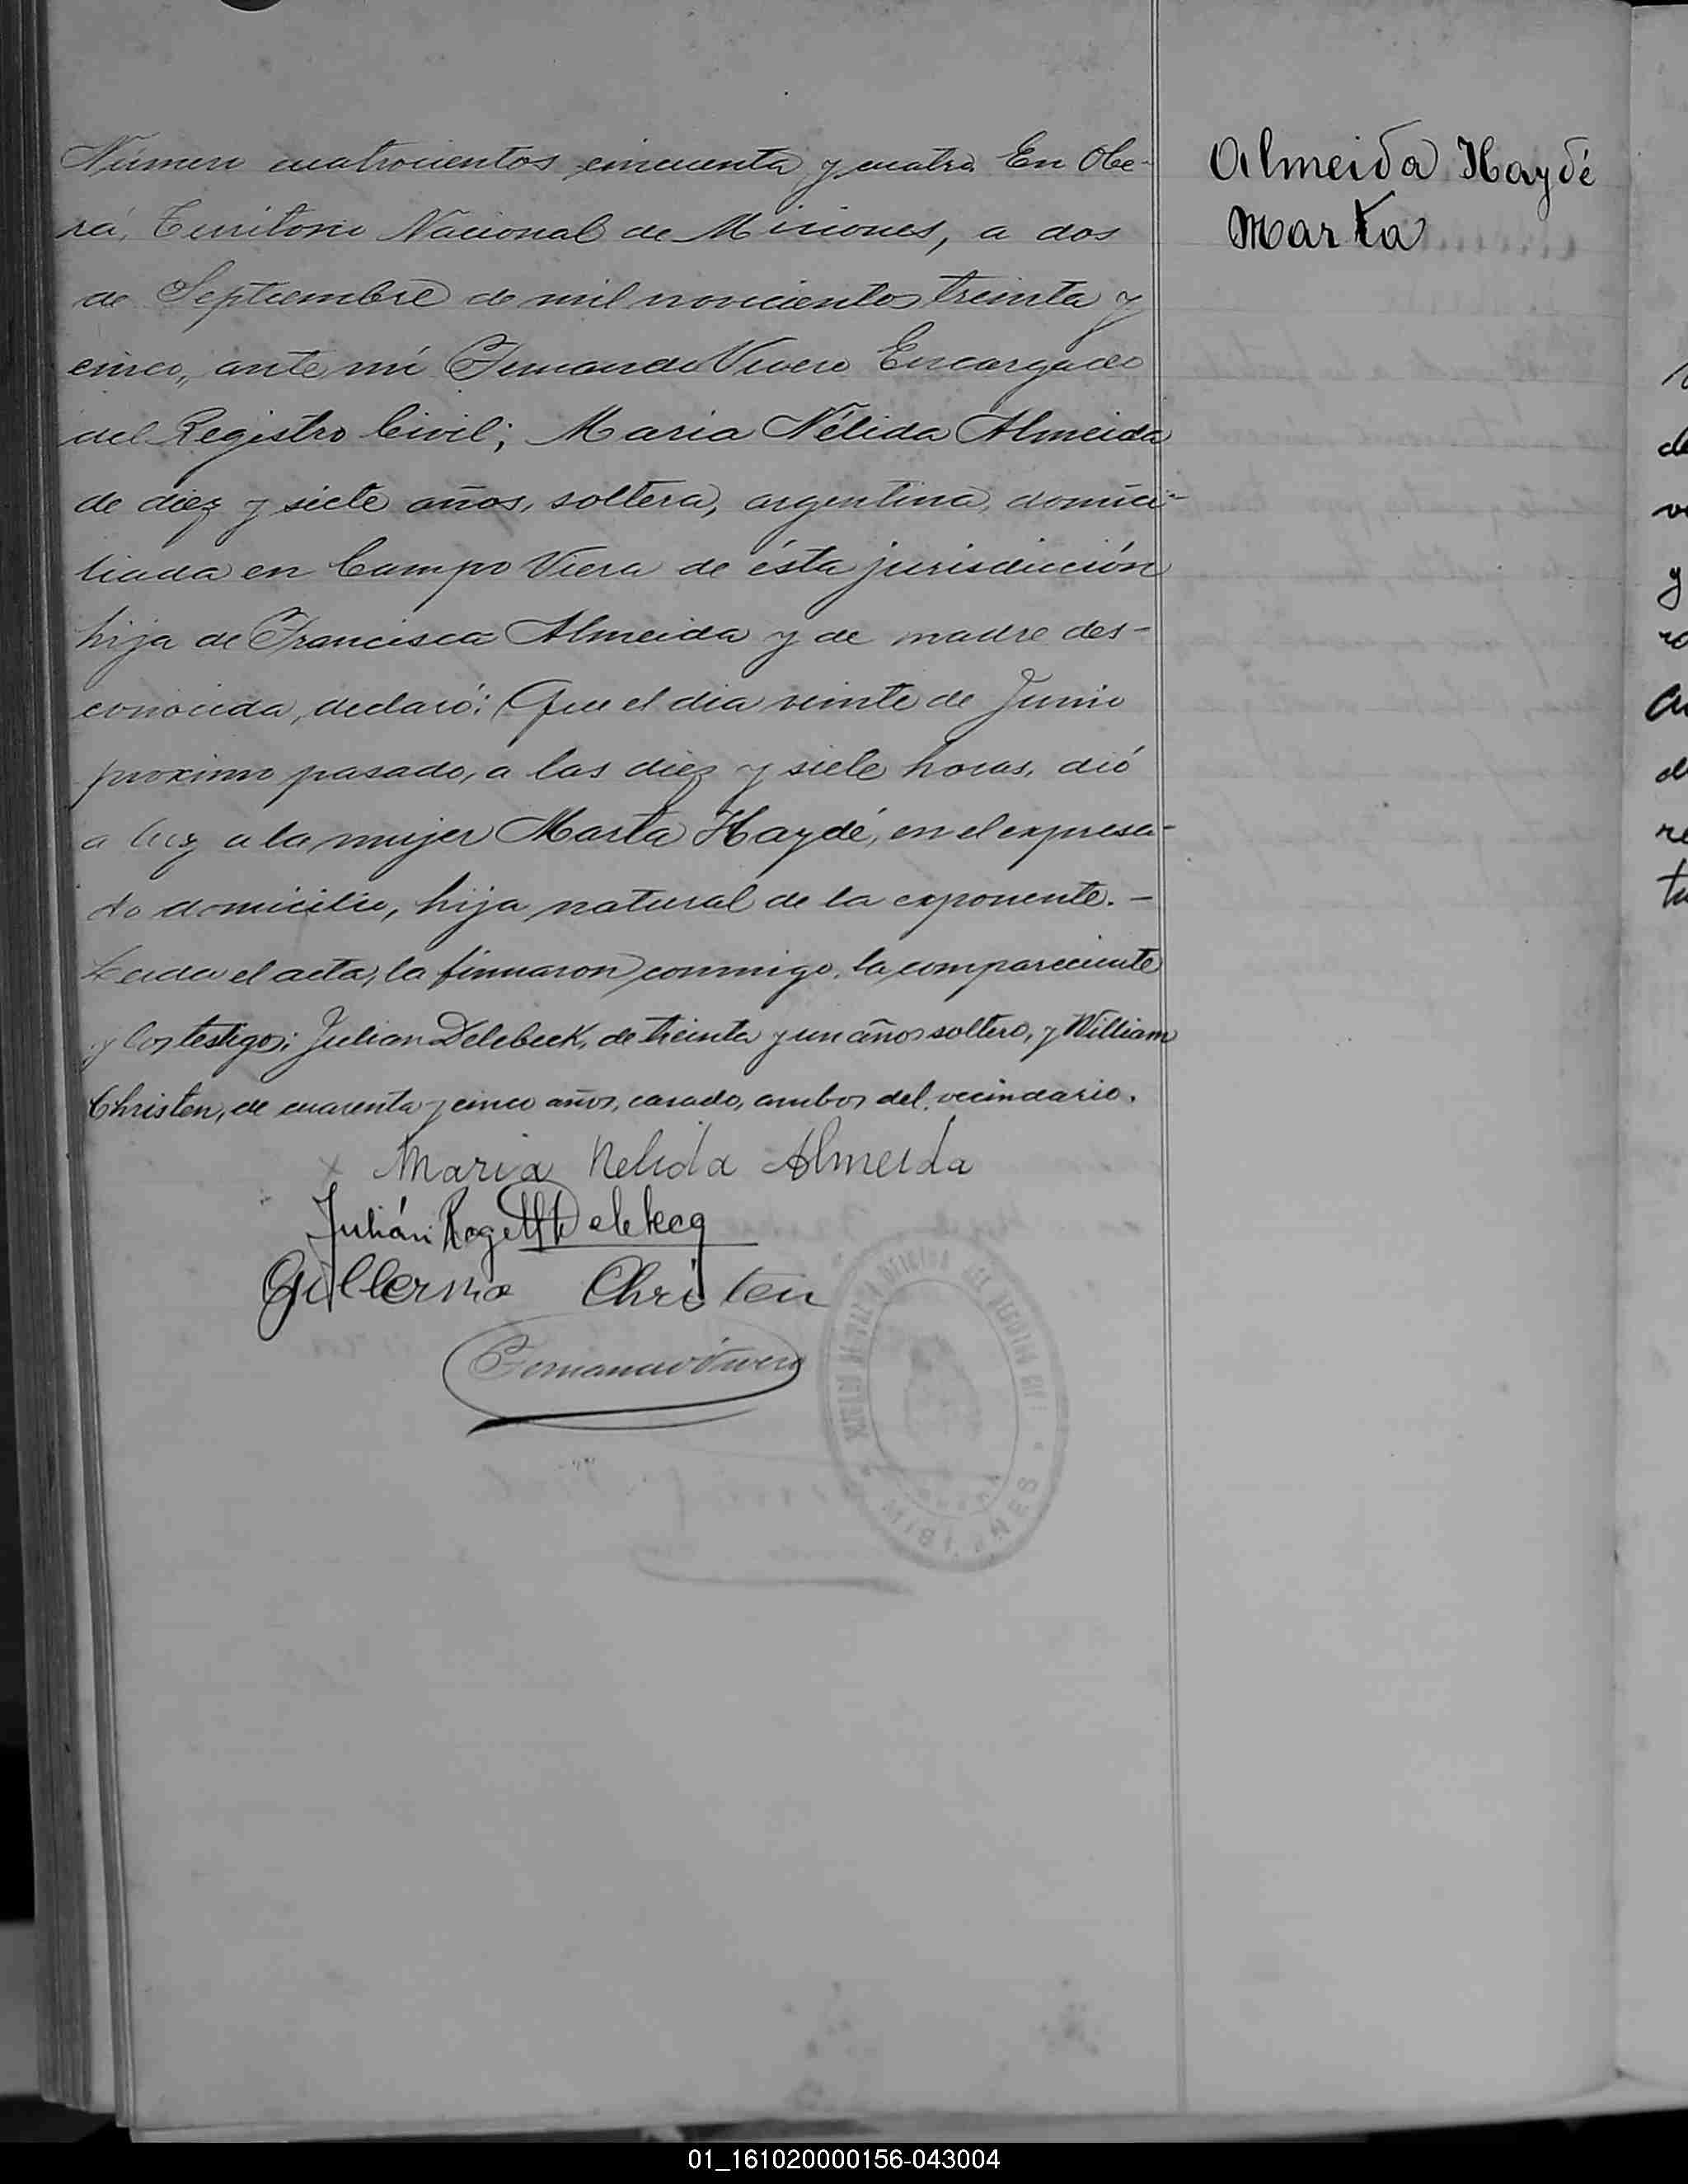 Número cuatrocientos cincuenta y cuatro. En Obe-
rá, Territorio Nacional de Misiones, a dos
de Septiembre de mil novecientos treinta y
cinco, ante mí Fernando Vivero Encargado
del Registro Civil; Maria Nélida Almeida
de diez y siete años, soltera, argentina, domici-
liada en Campo Viera de ésta jurisdicción
hija de Francisca Almeida y de madre des-
conocida, declaró: Que el dia veinte de Junio
proximo pasado, a las diez y siete horas, dió
a luz a la mujer Marta Haydé, en el expresa-
do domicilio, hija natural de la exponente. –
Leida el acta, la firmaron conmigo, la compareciente
y los testigos; Julian Delebeck, de treinta y un años soltero, y William
Christen, de cuarenta y cinco años, casado, ambos del vecindario.
Maria Nelida Almeida
Julián Delebecq
Guillermo Christen
Fernando Vivero
MISIONES
Almeida Haydé
Marta
01_161020000156-043004